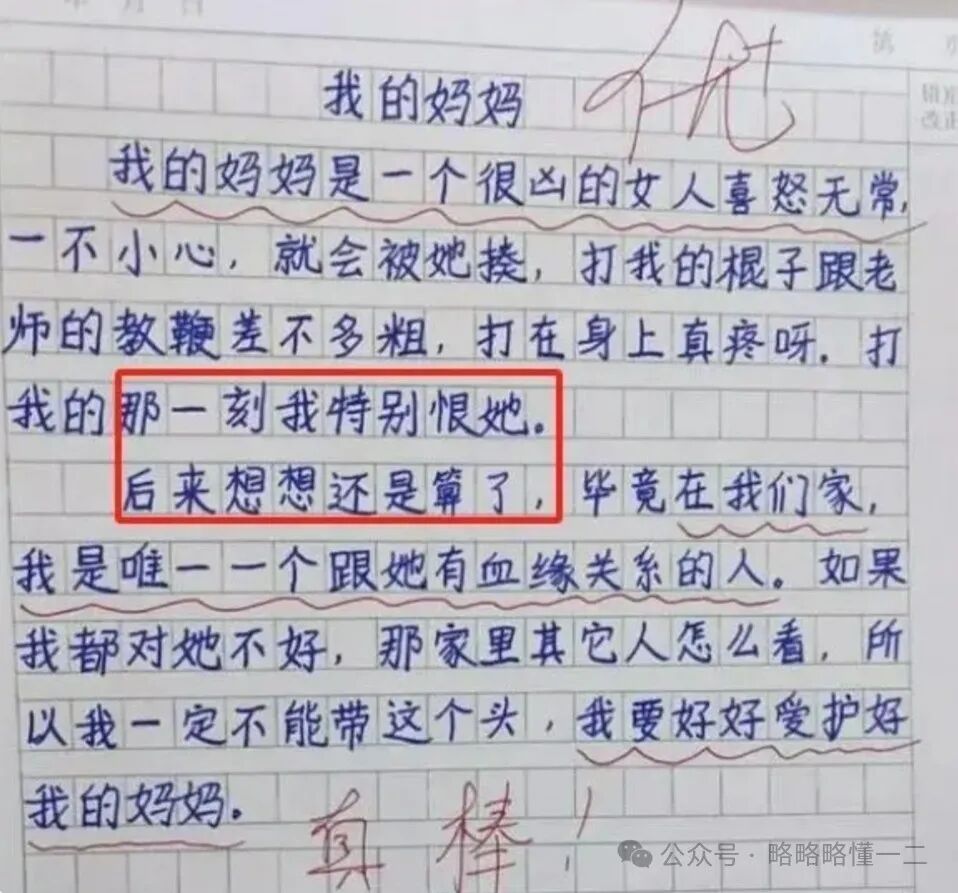 年 月 日
第 页
我的妈妈
优
我的妈妈是一个很凶的女人喜怒无常,
一不小心,就会被她揍,打我的棍子跟老
师的教鞭差不多粗,打在身上真疼呀.打
我的那一刻我特别恨她。
后来想想还是算了,毕竟在我们家,
我是唯一一个跟她有血缘关系的人。如果
我都对她不好,那家里其它人怎么看,所
以我一定不能带这个头,我要好好爱护好
我的妈妈。
真棒!
公众号·略略略懂一二